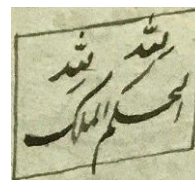 لله لله
الحکم الملک